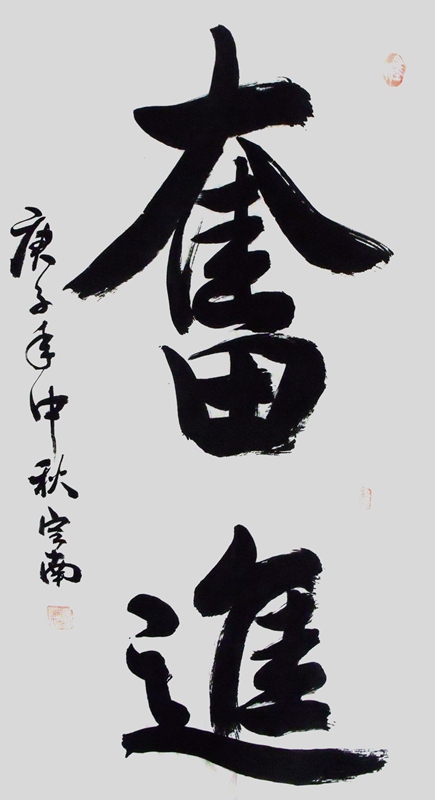 奮進
庚子年中秋定南